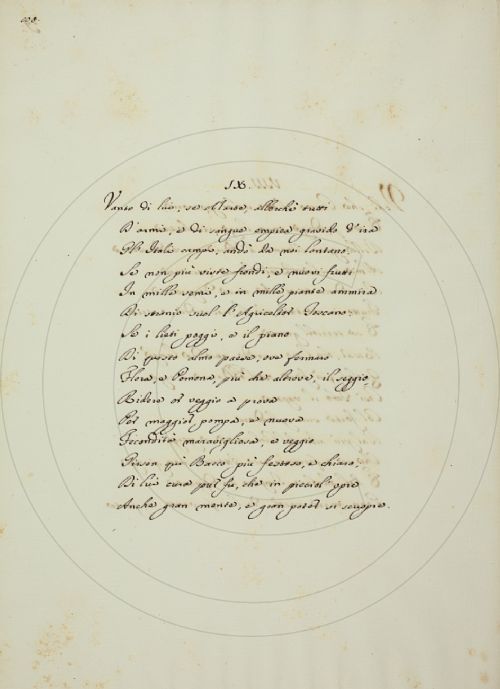 IX.
Vanto di lui, se Marte, allorchè tutti
D'armi, e di sangue empiea gravido d'ira
Gl' Itali campi, andò da noi lontano.
Se non più viste frondi, e nuovi frutti
In mille semi, e in mille piante ammira
Di stranio suol l'Agricoltor Toscano.
Se i lieti poggi, e il piano
Di questo almo paese, ove fermaro
Flora, e Pomona, più che altrove, il seggio,
Ridere or veggio a prova
Per maggior pompa, e nuova
Fecondità maravigliosa, e veggio
Fin qui Bacco più festoso, e chiaro,
Di lui cura pur fu, che in picciol' opre
Anche gran mente, e gran poter si scuopre.